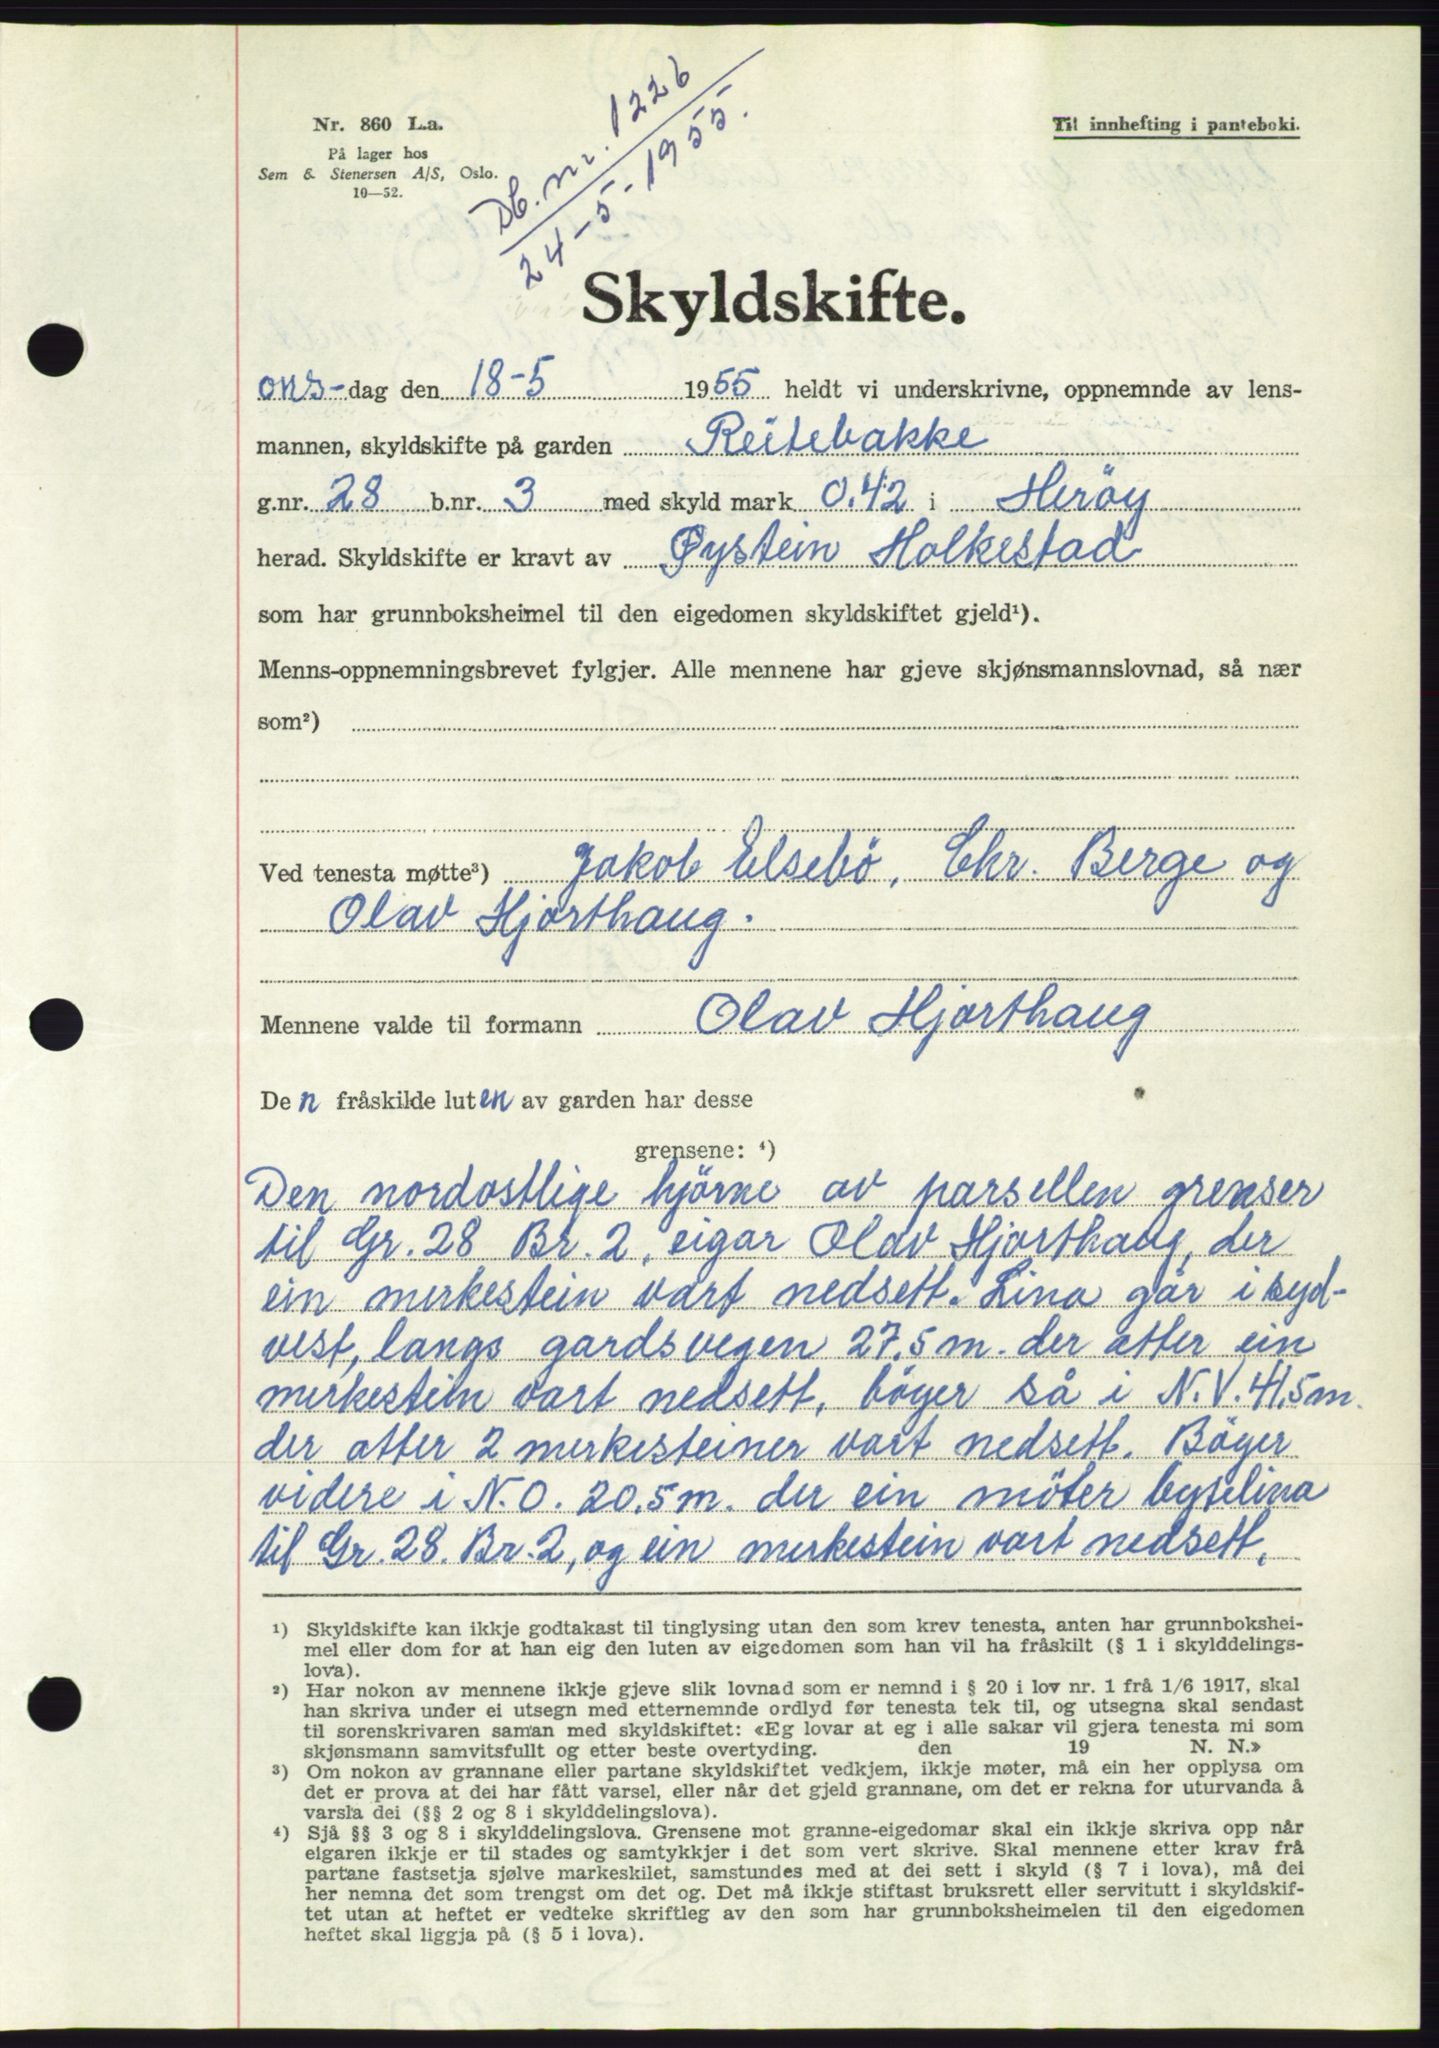 Nr. 860 L.a.
På lager hos
Sem & Stenersen A/S, Oslo.
10—52.
Db. nr. 1226
24-5-1955.
Til innhefting i panteboki.
Skyldskifte.
ons-dag den 18-5 1955 heldt vi underskrivne, oppnemnde av lens-
mannen, skyldskifte på garden Reitebakke
g.nr. 28 b.nr. 3 med skyld mark 0.42 i Heröy
herad. Skyldskifte er kravt av Øystein Holkestad
som har grunnboksheimel til den eigedomen skyldskiftet gjeld¹).
Menns-oppnemningsbrevet fylgjer. Alle mennene har gjeve skjønsmannslovnad, så nær
som²)
Ved tenesta møtte³) Jakob Elsebö, Chr. Berge og
Olav Hjorthaug.
Mennene valde til formann Olav Hjorthaug
Den fråskilde luten av garden har desse
grensene: ⁴)
Den nordostlige hjörne av parsellen grenser
til Gr. 28 Br. 2, eigar Olav Hjorthaug, der
ein merkestein vart nedsett. Lina går i syd-
vest, langs gardsvegen 27,5 m. der atter ein
merkestein vart nedsett, böyer så i N.V. 41,5 m.
der atter 2 merkesteiner vart nedsett. Böyer
videre i N.O. 20,5 m. der ein möter bytelina
til Gr. 28. Br. 2, og ein merkestein vart nedsett,
¹) Skyldskifte kan ikkje godtakast til tinglysing utan den som krev tenesta, anten har grunnbokshei-
mel eller dom for at han eig den luten av eigedomen som han vil ha fråskilt (§ 1 i skylddelings-
lova).
²) Har nokon av mennene ikkje gjeve slik lovnad som er nemnd i § 20 i lov nr. 1 frå 1/6 1917, skal
han skriva under ei utsegn med etternemnde ordlyd før tenesta tek til, og utsegna skal sendast
til sorenskrivaren saman med skyldskiftet: «Eg lovar at eg i alle sakar vil gjera tenesta mi som
skjønsmann samvitsfullt og etter beste overtyding. den 19 N. N.»
³) Om nokon av grannane eller partane skyldskiftet vedkjem, ikkje møter, må ein her opplysa om
det er prova at dei har fått varsel, eller når det gjeld grannane, om det er rekna for uturvanda å
varsla dei (§§ 2 og 8 i skylddelingslova).
⁴) Sjå §§ 3 og 8 i skylddelingslova. Grensene mot granne-eigedomar skal ein ikkje skriva opp når
eigaren ikkje er til stades og samtykkjer i det som vert skrive. Skal mennene etter krav frå
partane fastsetja sjølve markeskilet, samstundes med at dei sett i skyld (§ 7 i lova), må dei
her nemna det som trengst om det og. Det må ikkje stiftast bruksrett eller servitutt i skyldskif-
tet utan at heftet er vedteke skriftleg av den som har grunnboksheimelen til den eigedomen
heftet skal liggja på (§ 5 i lova).